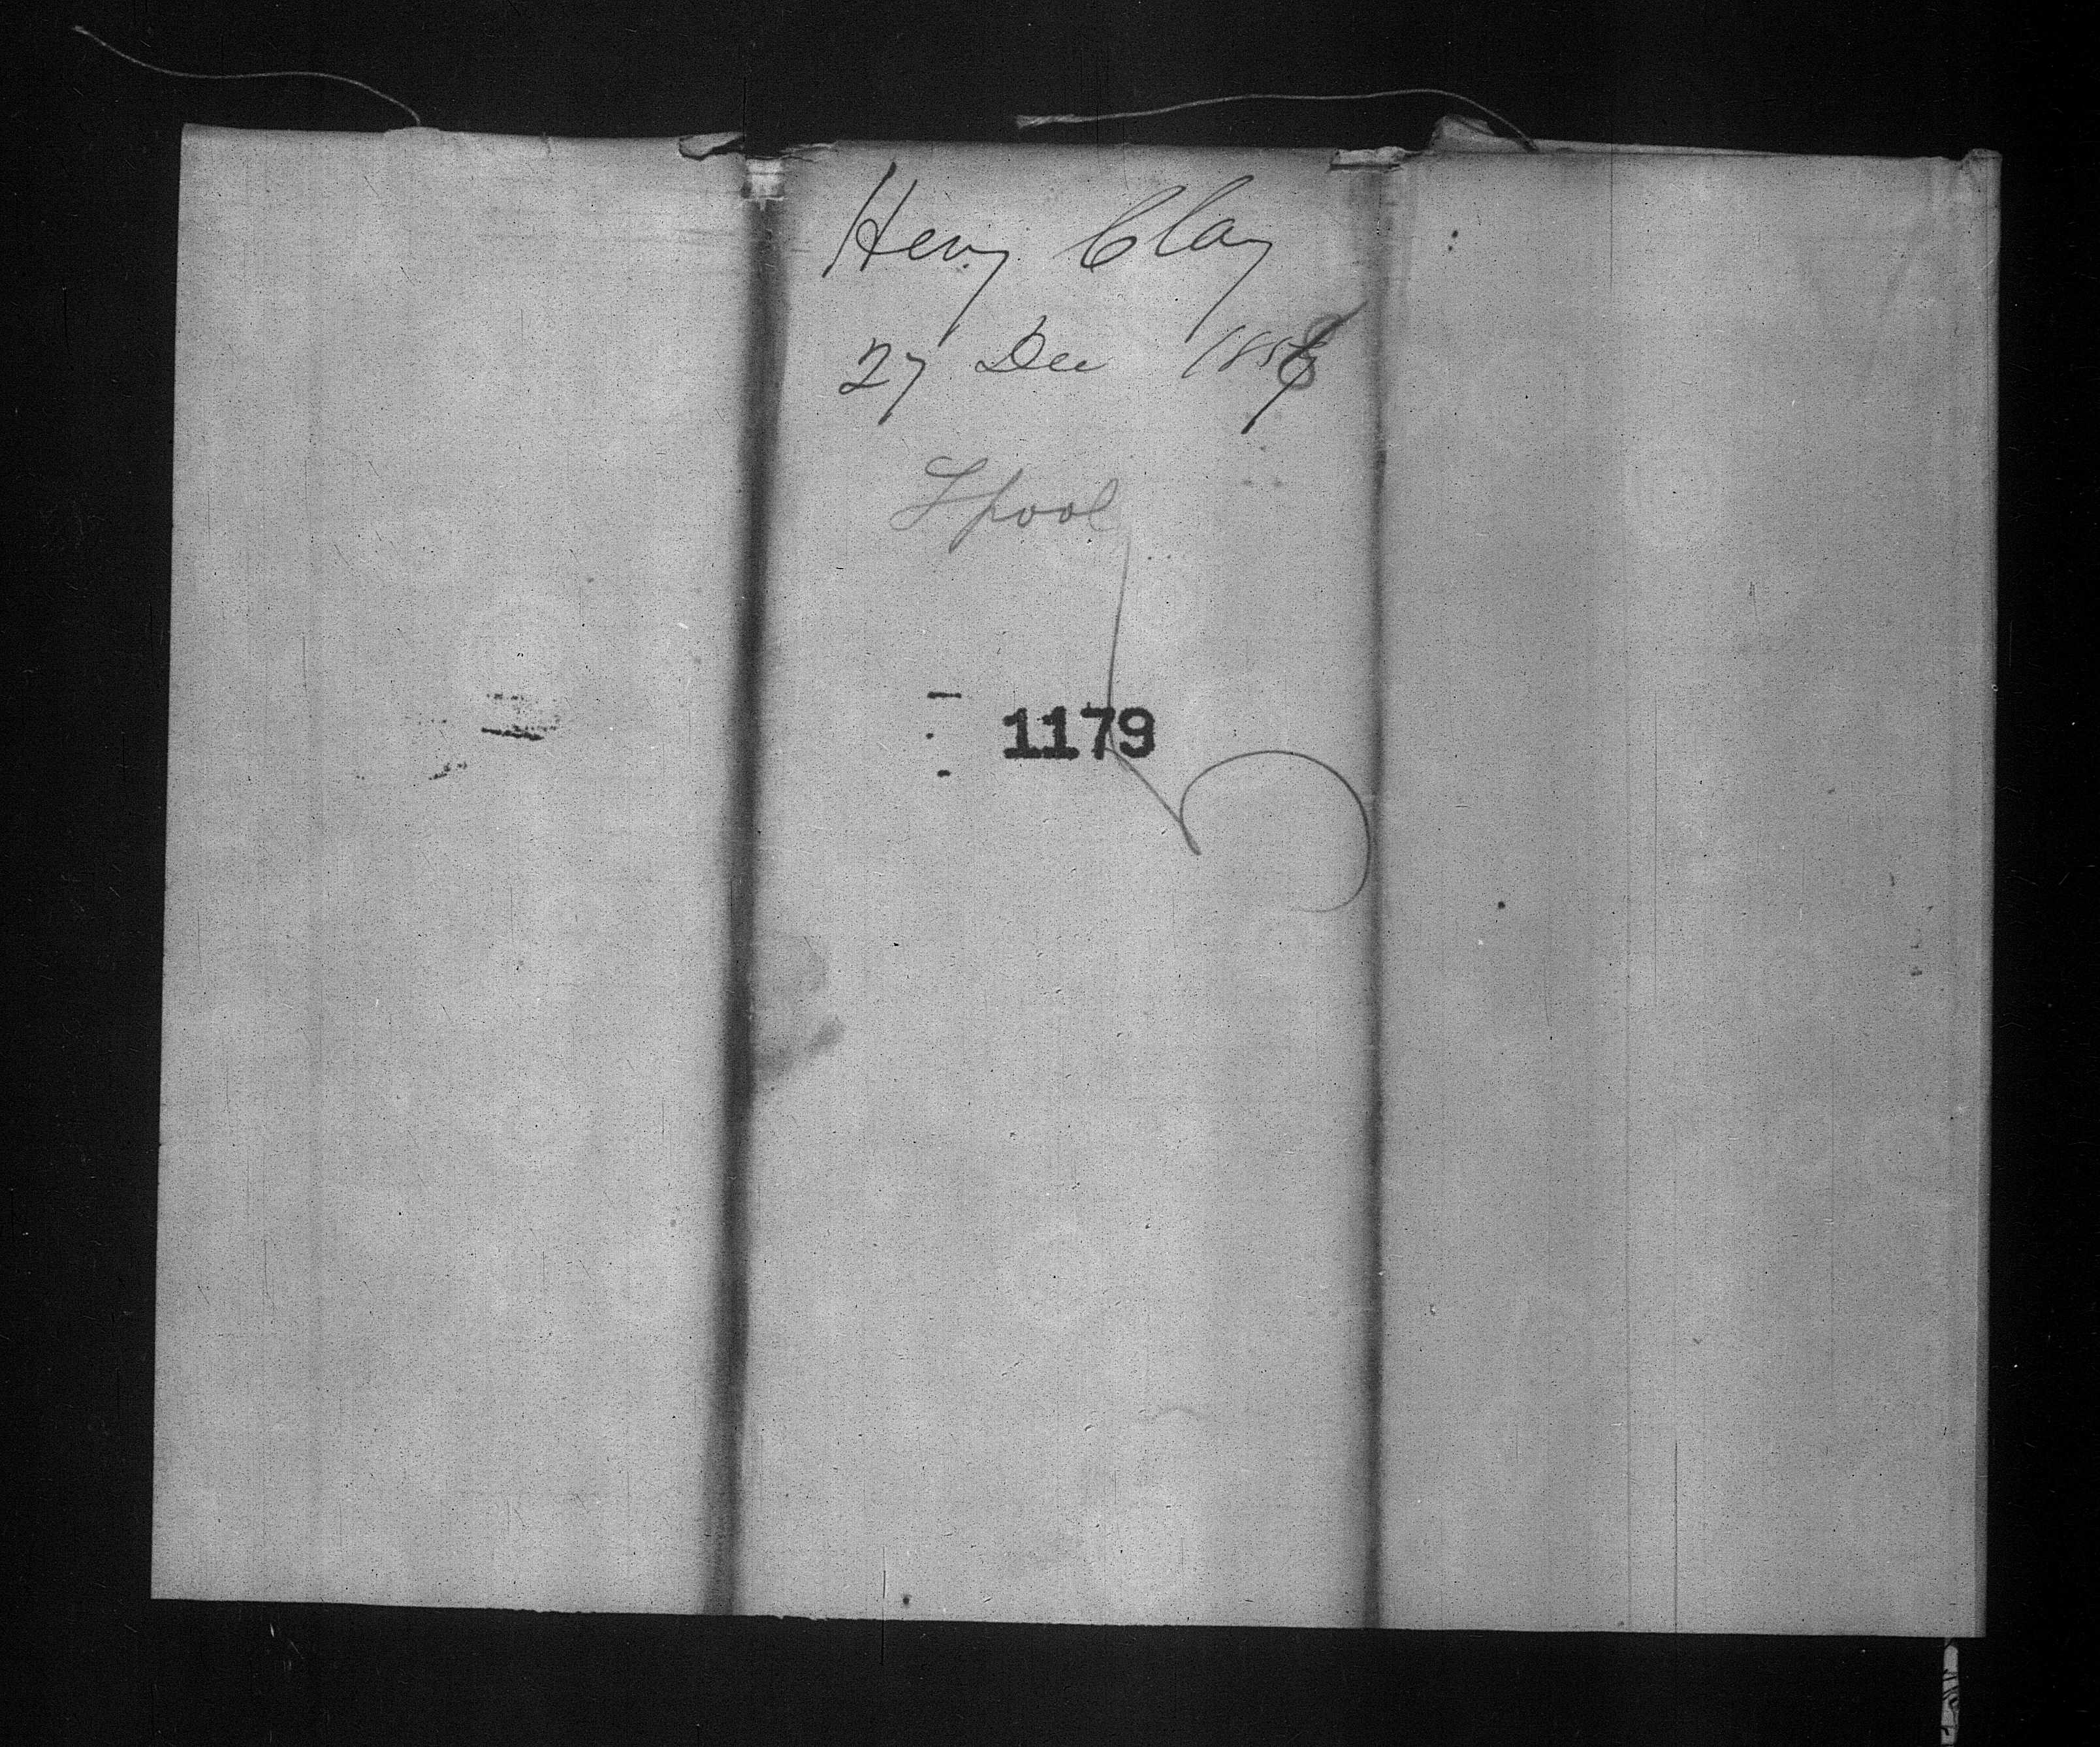 Henry Clay
27 Dec 1858
Lpool
1179